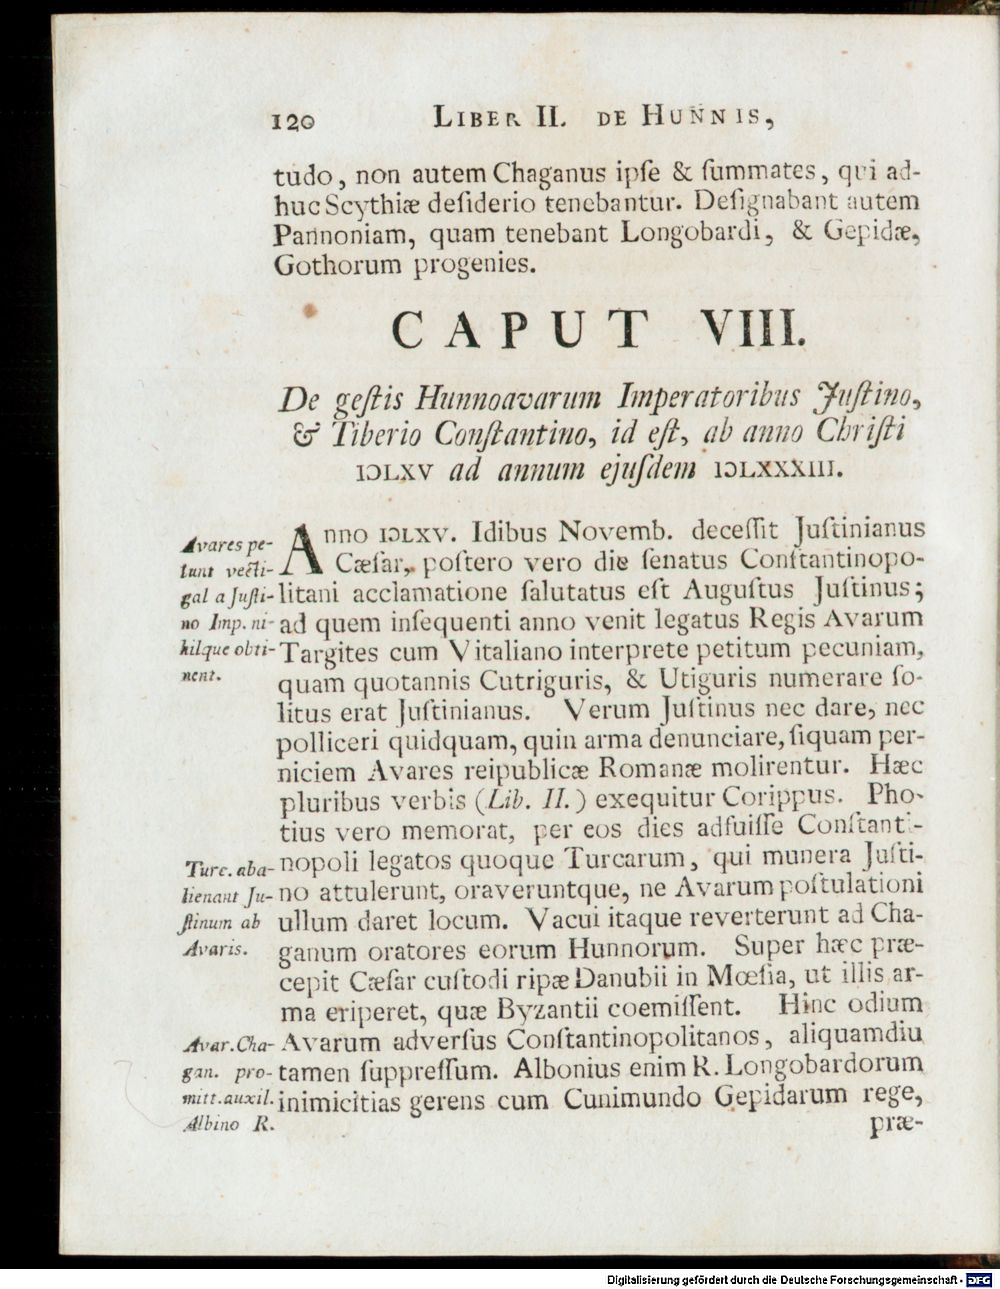 120 LIBER II. DE HUNNIS,
tudo, non autem Chaganus ipſe & ſummates, qui ad-
huc Scythiæ deſiderio tenebantur. Deſignabant autem
Pannoniam, quam tenebant Longobardi, & Gepidæ,
Gothorum progenies.
CAPUT VIII.
De geſtis Hunnoavarum Imperatoribus Juſtino,
& Tiberio Conſtantino, id eſt, ab anno Chriſti
IƆLXV ad annum ejuſdem IƆLXXXIII.
Anno IƆLXV. Idibus Novemb. deceſſit Juſtinianus
Cæſar, poſtero vero die ſenatus Conſtantinopo-
litani acclamatione ſalutatus eſt Auguſtus Juſtinus;
ad quem inſequenti anno venit legatus Regis Avarum
Targites cum Vitaliano interprete petitum pecuniam,
quam quotannis Cutriguris, & Utiguris numerare ſo-
litus erat Juſtinianus. Verum Juſtinus nec dare, nec
polliceri quidquam, quin arma denunciare, ſiquam per-
niciem Avares reipublicæ Romanæ molirentur. Hæc
pluribus verbis (Lib. II.) exequitur Corippus. Pho-
tius vero memorat, per eos dies adfuiſſe Conſtanti-
nopoli legatos quoque Turcarum, qui munera Juſti-
no attulerunt, oraveruntque, ne Avarum poſtulationi
ullum daret locum. Vacui itaque reverterunt ad Cha-
ganum oratores eorum Hunnorum. Super hæc præ-
cepit Cæſar cuſtodi ripæ Danubii in Mœſia, ut illis ar-
ma eriperet, quæ Byzantii coemiſſent. Hinc odium
Avarum adverſus Conſtantinopolitanos, aliquamdiu
tamen ſuppreſſum. Albonius enim R. Longobardorum
inimicitias gerens cum Cunimundo Gepidarum rege,
præ-
Avares pe-
tunt vecti-
gal a Juſti-
no Imp. ni-
hilque obti-
nent.
Turc. aba-
lienant Ju-
ſtinum ab
Avaris.
Avar. Cha-
gan. pro-
mitt. auxil.
Albino R.
Digitalisierung gefördert durch die Deutsche Forschungsgemeinschaft - DFG